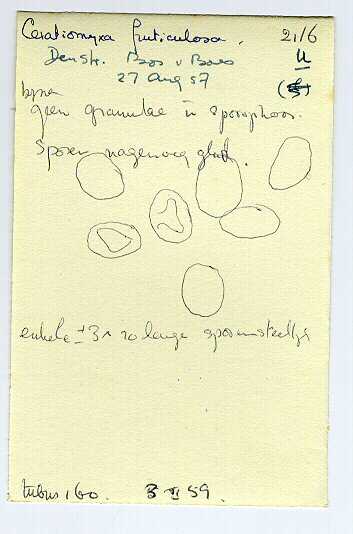 Ceratiomyxa fruticulosa. 21/6
Denstr. Bos v Bares U
27 Aug 57
bijna
geen granulae in sporophoor.
Sporen nagenoeg glad.
enkele ± 3 x zo lange sporensteeltjes
tubus 160. 3 VI 59.